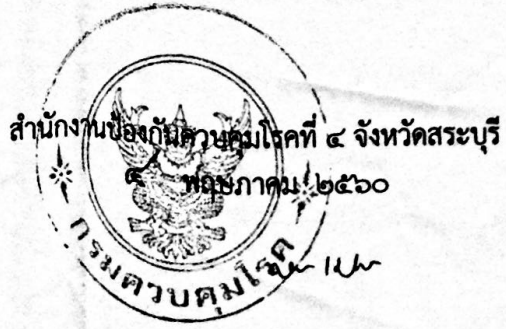 สำนักงานป้องกันควบคุมโรคที่ ๔ จังหวัดสระบุรี
พฤษภาคม ๒๕๖๐
กรมควบคุมโรค